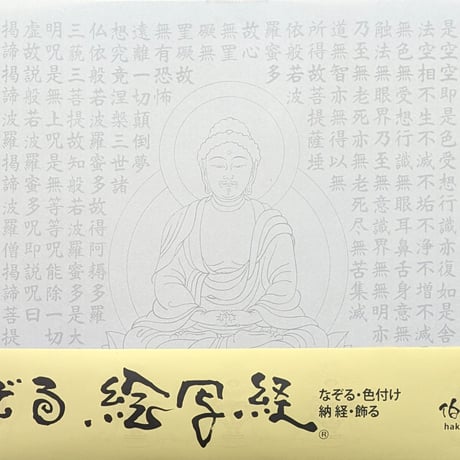 是空空即是色受想行識亦復如是舎
法空相不生不滅不垢不浄不増不減
無色無受想行識無眼耳鼻舌身意無
触法無眼界乃至無意識界無無明亦
乃至無老死亦無老死尽無苦集滅
道無智亦無得以無
所得故菩提薩埵
依般若波
羅蜜多
故心
無罣
礙無
罣礙故
無有恐怖
遠離一切顛倒夢
想究竟涅槃三世諸
仏依般若波羅蜜多故得阿耨多羅
三藐三菩提故知般若波羅蜜多是大
明呪是無上呪是無等等呪能除一切
虚故説般若波羅蜜多呪即説呪曰
揭諦揭諦波羅揭諦波羅僧揭諦菩提
ぞる 絵写経®
なぞる・色付け
納経・飾る
伯
hak